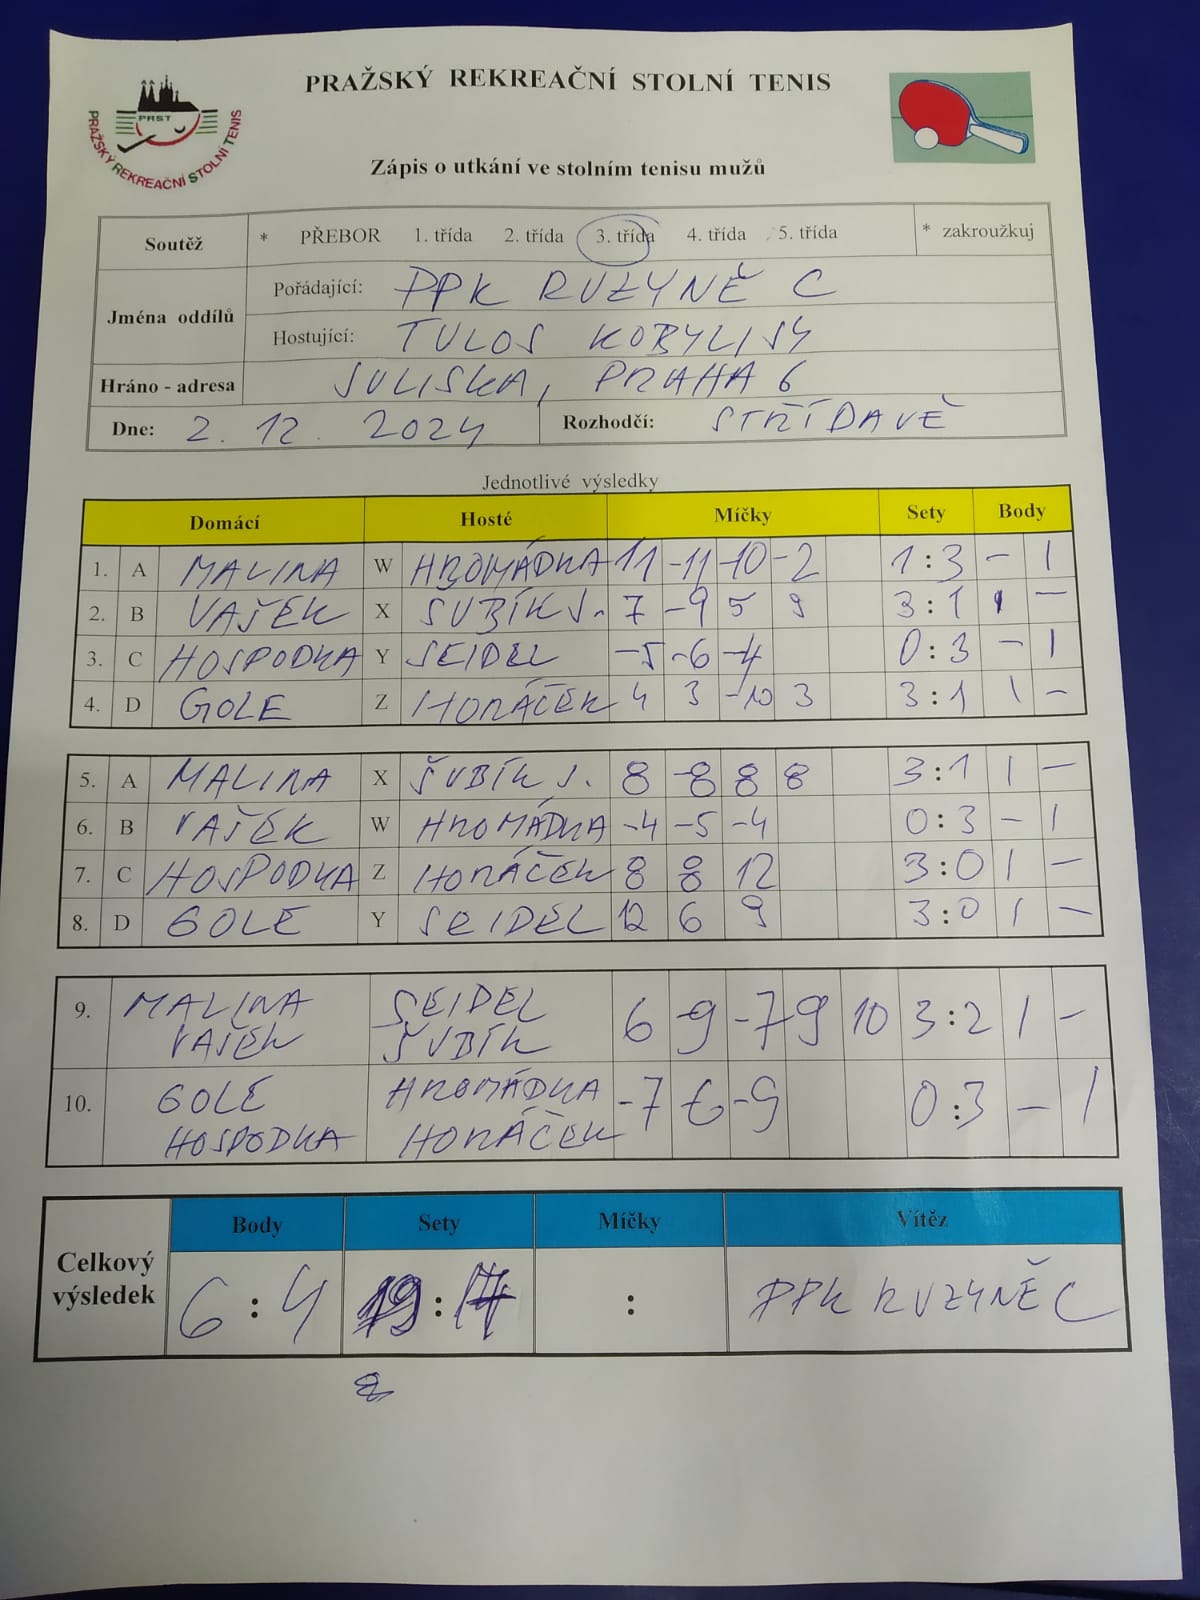 PRAŽSKÝ REKREAČNÍ STOLNÍ TENIS
PRST
PRAŽSKÝ REKREAČNÍ STOLNÍ TENIS
Zápis o utkání ve stolním tenisu mužů
Soutěž * PŘEBOR 1. třída 2. třída 3. třída 4. třída 5. třída * zakroužkuj
Jména oddílů
Pořádající: PPK RUZYNĚ C
Hostující: TULOS KOBYLISY
Hráno - adresa JULISKA, PRAHA 6
Dne: 2. 12. 2024 Rozhodčí: STŘÍDAVĚ
Jednotlivé výsledky
Domácí Hosté Míčky Sety Body
1. A MALINA W HROMÁDKA 11 -11 -10 -2 1:3 - 1
2. B VAŠEK X ŠUBÍK J. 7 -9 5 9 3:1 1 -
3. C HOSPODKA Y SEIDEL -5 -6 -4 0:3 - 1
4. D GOLE Z HORÁČEK 4 3 -10 3 3:1 1 -
5. A MALINA X ŠUBÍK J. 8 -8 8 8 3:1 1 -
6. B VAŠEK W HROMÁDKA -4 -5 -4 0:3 - 1
7. C HOSPODKA Z HORÁČEK 8 8 12 3:0 1 -
8. D GOLE Y SEIDEL 12 6 9 3:0 1 -
9. MALINA SEIDEL 6 -9 -7 9 10 3:2 1 -
VAŠEK ŠUBÍK
10. GOLE HROMÁDKA -7 -6 -9 0:3 - 1
HOSPODKA HORÁČEK
Body Sety Míčky Vítěz
Celkový výsledek 6:4 19:17 : PPK RUZYNĚ C